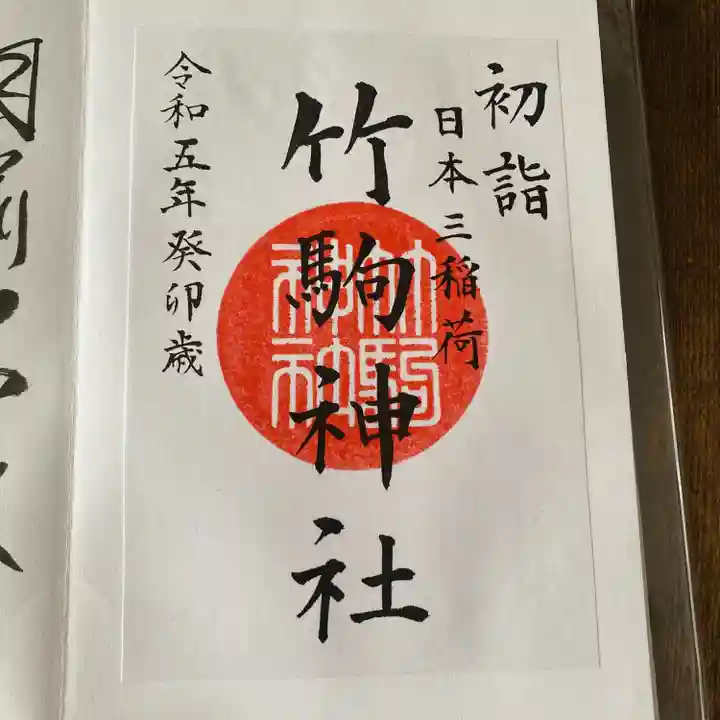 初詣
日本三稲荷
竹駒神社
竹駒神社
令和五年癸卯歳